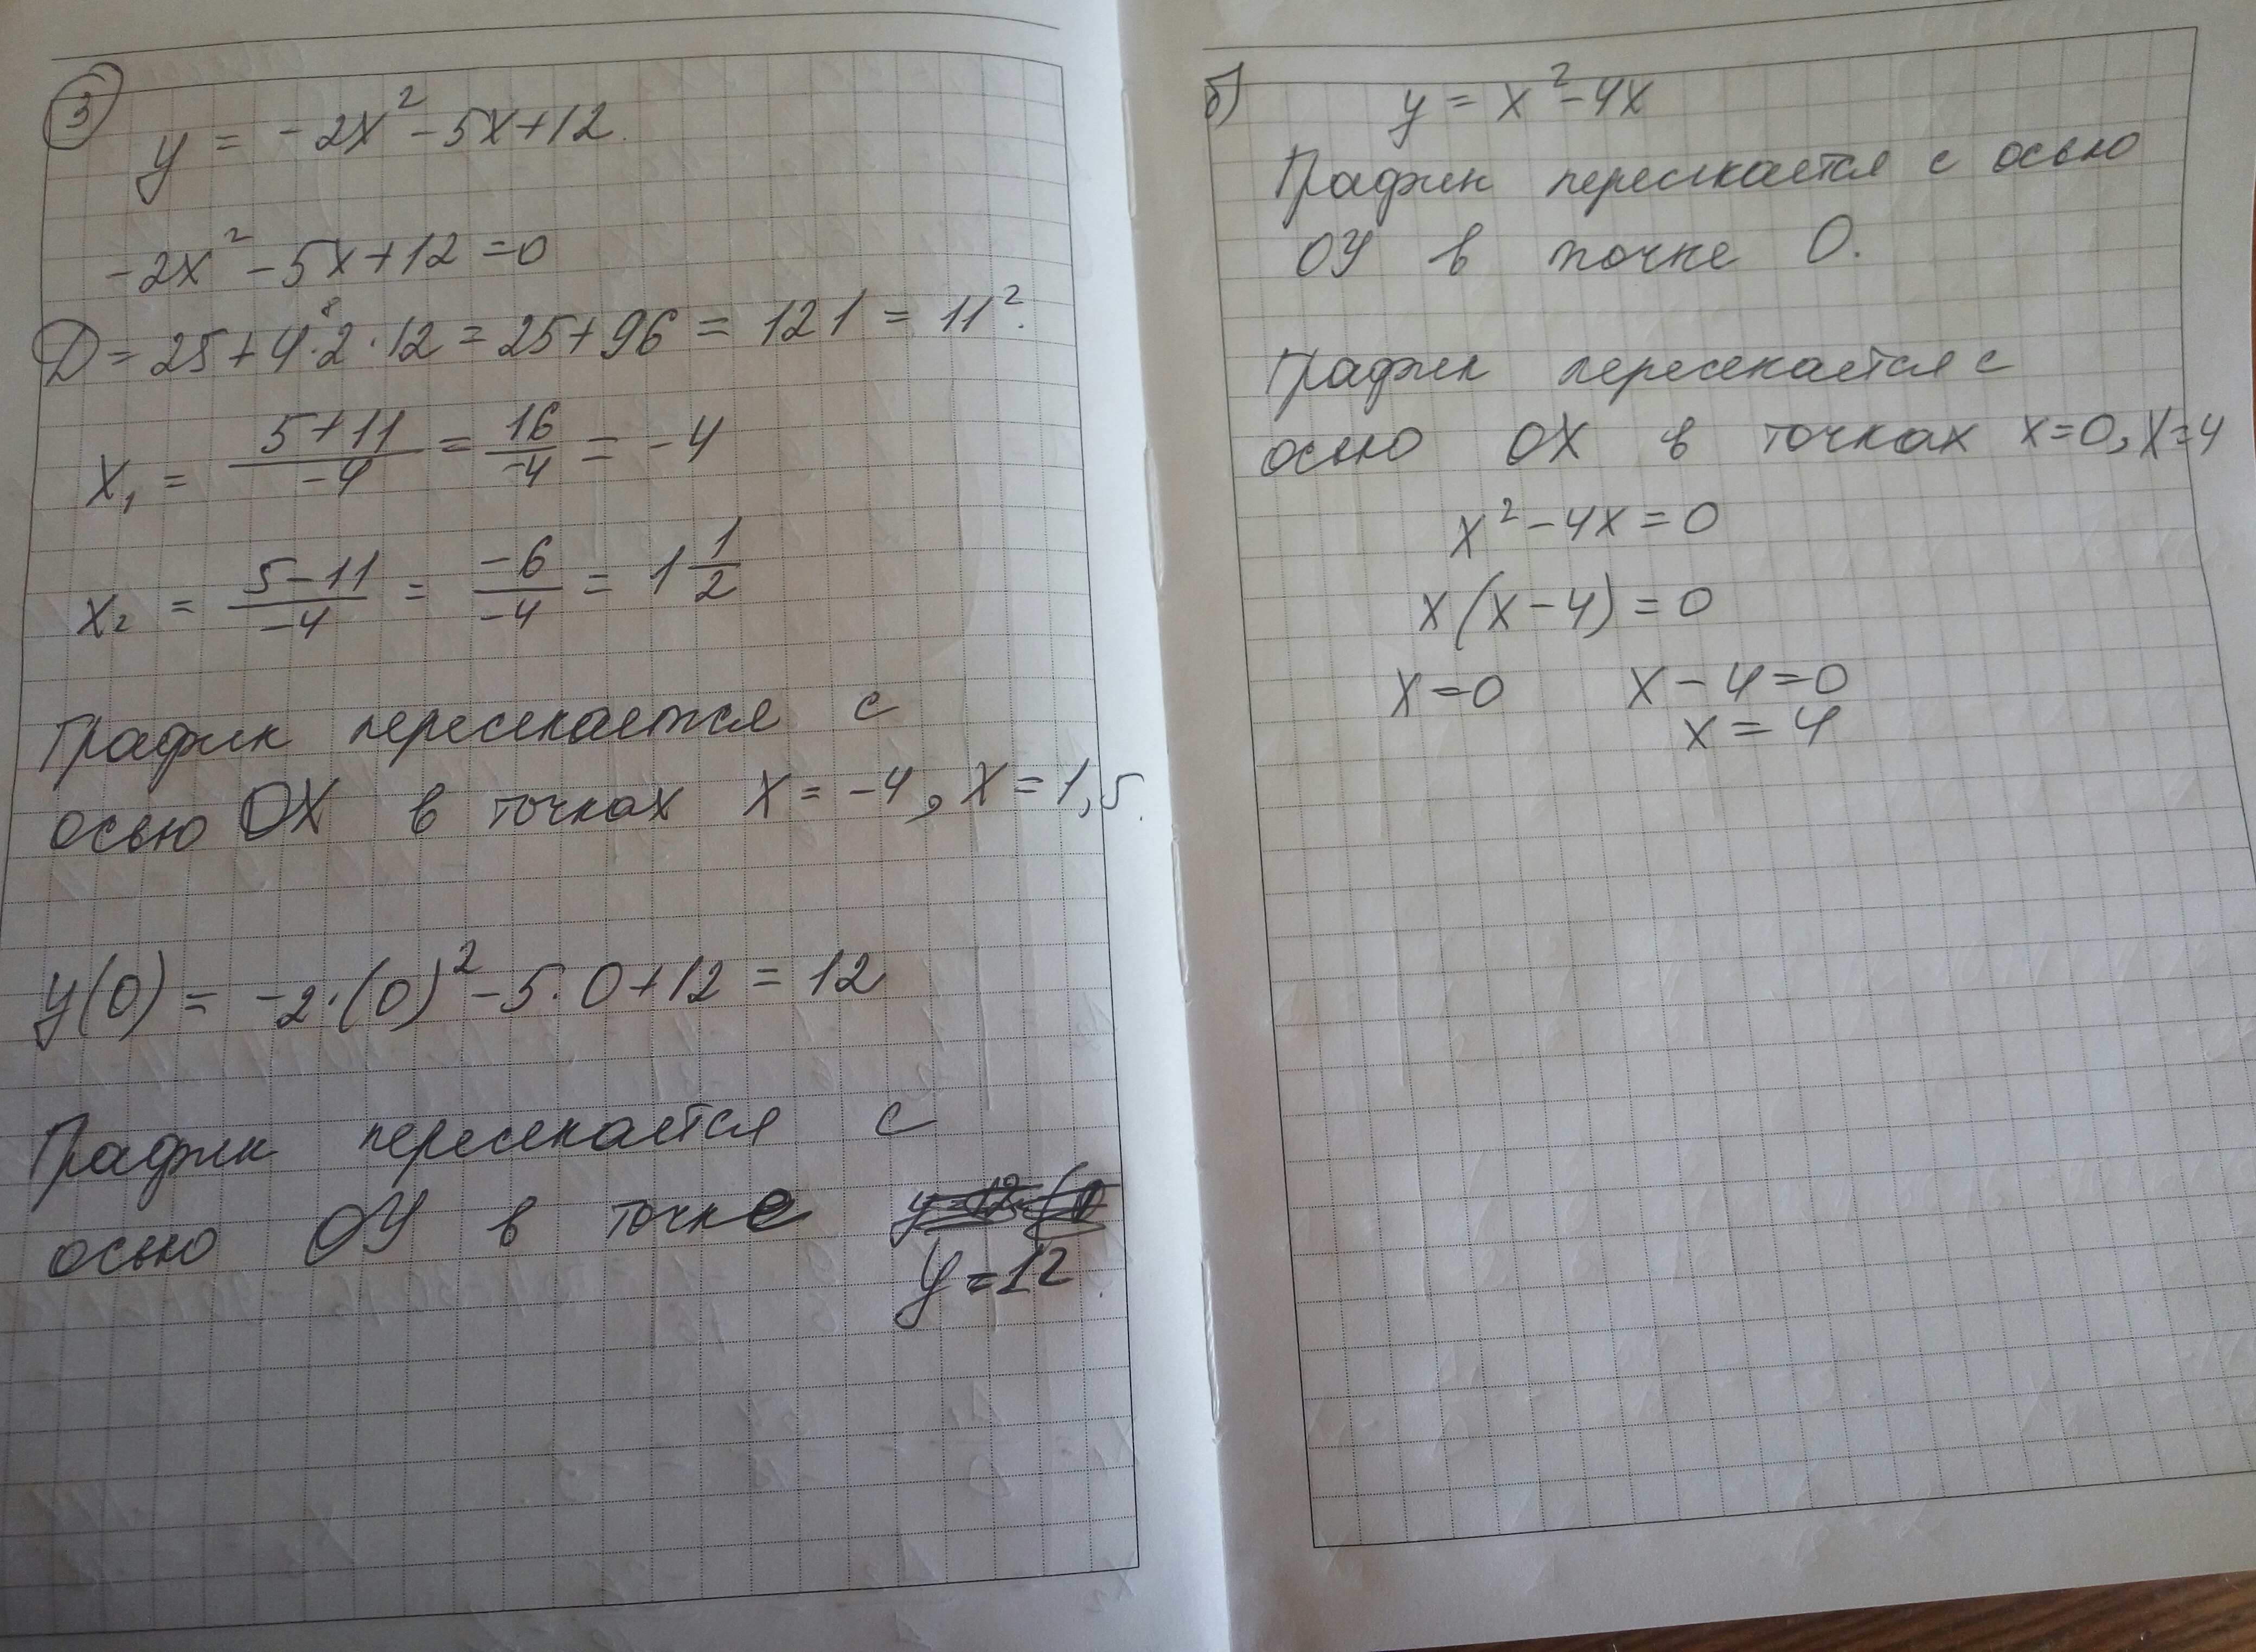 3
y = -2x² - 5x + 12.
-2x² - 5x + 12 = 0
D = 25 + 4·2·12 = 25 + 96 = 121 = 11².
x₁ = (5+11)/-4 = 16/-4 = -4
x₂ = (5-11)/-4 = -6/-4 = 1 1/2
График пересекается с
осью OX в точках x = -4, x = 1,5.
y(0) = -2·(0)² - 5·0 + 12 = 12
График пересекается с
осью OY в точке
y = 12.
б) y = x² - 4x
График пересекается с осью
OY в точке 0.
График пересекается с
осью OX в точках x=0, x=4
x² - 4x = 0
x(x-4) = 0
x=0 x-4=0
x = 4